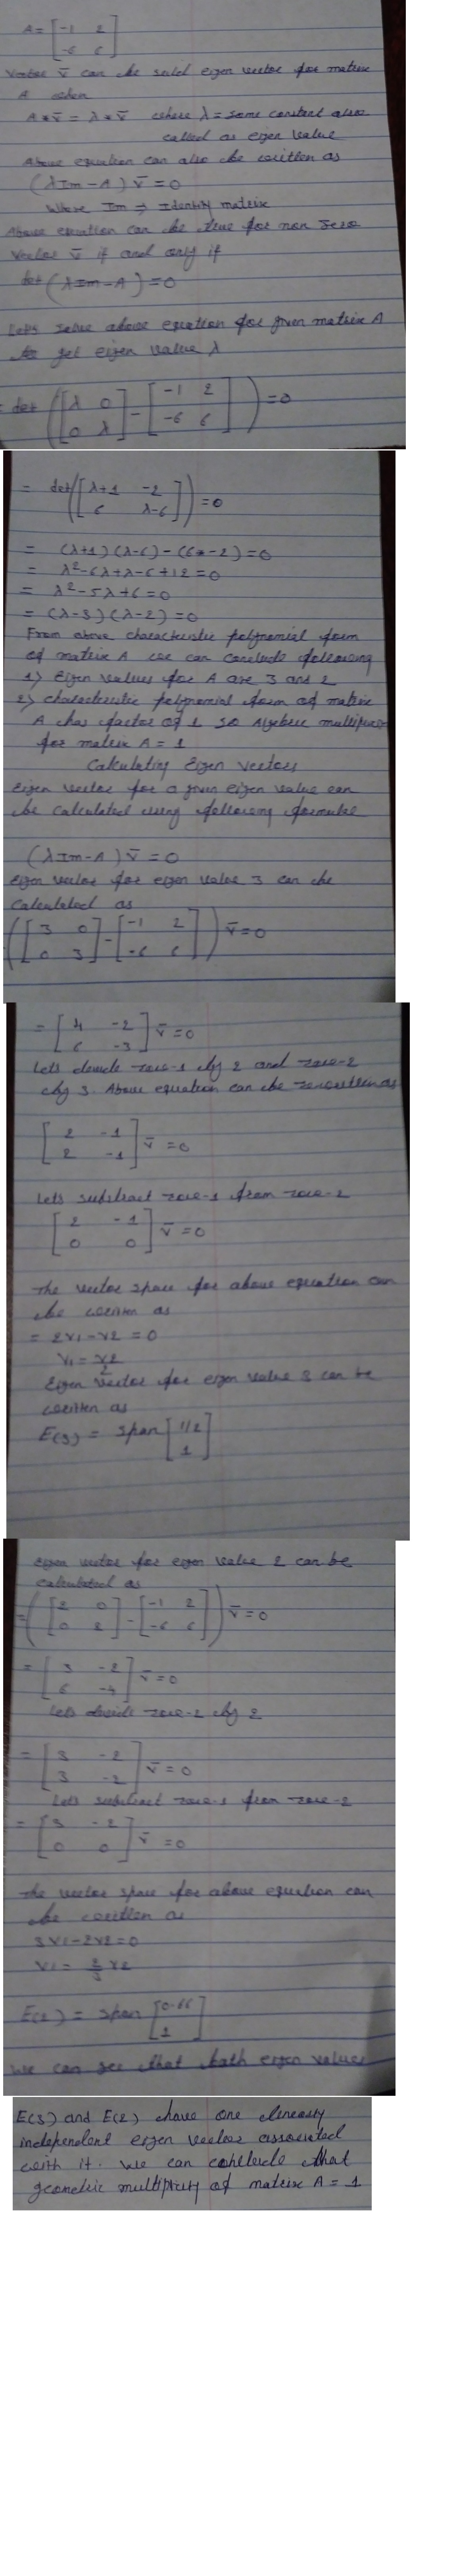 A = [ -1 2
-6 6 ]
Vector v̄ can be said eigen vector for matrix
A when
A * v̄ = λ * v̄ where λ = some constant also
called as eigen value
Above equation can also be written as
(λIm - A) v̄ = 0
Where Im → Identity matrix
Above equation can be true for non zero
Vector v̄ if and only if
det (λIm - A) = 0
Lets solve above equation for given matrix A
to get eigen value λ
= det ( [ λ 0 - [ -1 2 ) = 0
0 λ ] -6 6 ]
= det ( [ λ+1 -2 ) = 0
6 λ-6 ]
= (λ+1)(λ-6) - (6*-2) = 0
= λ² - 6λ + λ - 6 + 12 = 0
= λ² - 5λ + 6 = 0
= (λ-3)(λ-2) = 0
From above characteristic polynomial form
of matrix A we can conclude following
1) Eigen values for A are 3 and 2
2) characteristic polynomial form of matrix
A has factor of 1 so Algebric
for matrix A = 1
Calculating Eigen vectors
Eigen vector for a given eigen value can
be calculated using following formulae
(λIm - A) v̄ = 0
Eigen vector for eigen value 3 can be
calculated as
( [ 3 0 - [ -1 2 ) v̄ = 0
0 3 ] -6 6 ]
= [ 4 -2 v̄ = 0
6 -3 ]
Lets devide row-1 by 2 and row-2
by 3. Above equation can be as
[ 2 -1 v̄ = 0
2 -1 ]
Lets substract row-1 from row-2
[ 2 -1 v̄ = 0
0 0 ]
The vector space for above equation can
be written as
= 2v1 - v2 = 0
v1 = v2/2
Eigen vector for eigen value 3 can be
written as
E(3) = span [ 1/2
1 ]
Eigen vector for eigen value 2 can be
calculated as
= ( [ 2 0 - [ -1 2 ) v̄ = 0
0 2 ] -6 6 ]
= [ 3 -2 v̄ = 0
6 -4 ]
Lets devide row-2 by 2
= [ 3 -2 v̄ = 0
3 -2 ]
Lets substract row-1 from row-2
= [ 3 -2 v̄ = 0
0 0 ]
The vector space for above equation can
be written as
3v1 - 2v2 = 0
v1 = 2/3 v2
E(2) = span [ 0.66
1 ]
We can see that both eigen values
E(3) and E(2) have one linearly
independent eigen vector associated
with it. We can conclude that
geometric of matrix A = 1